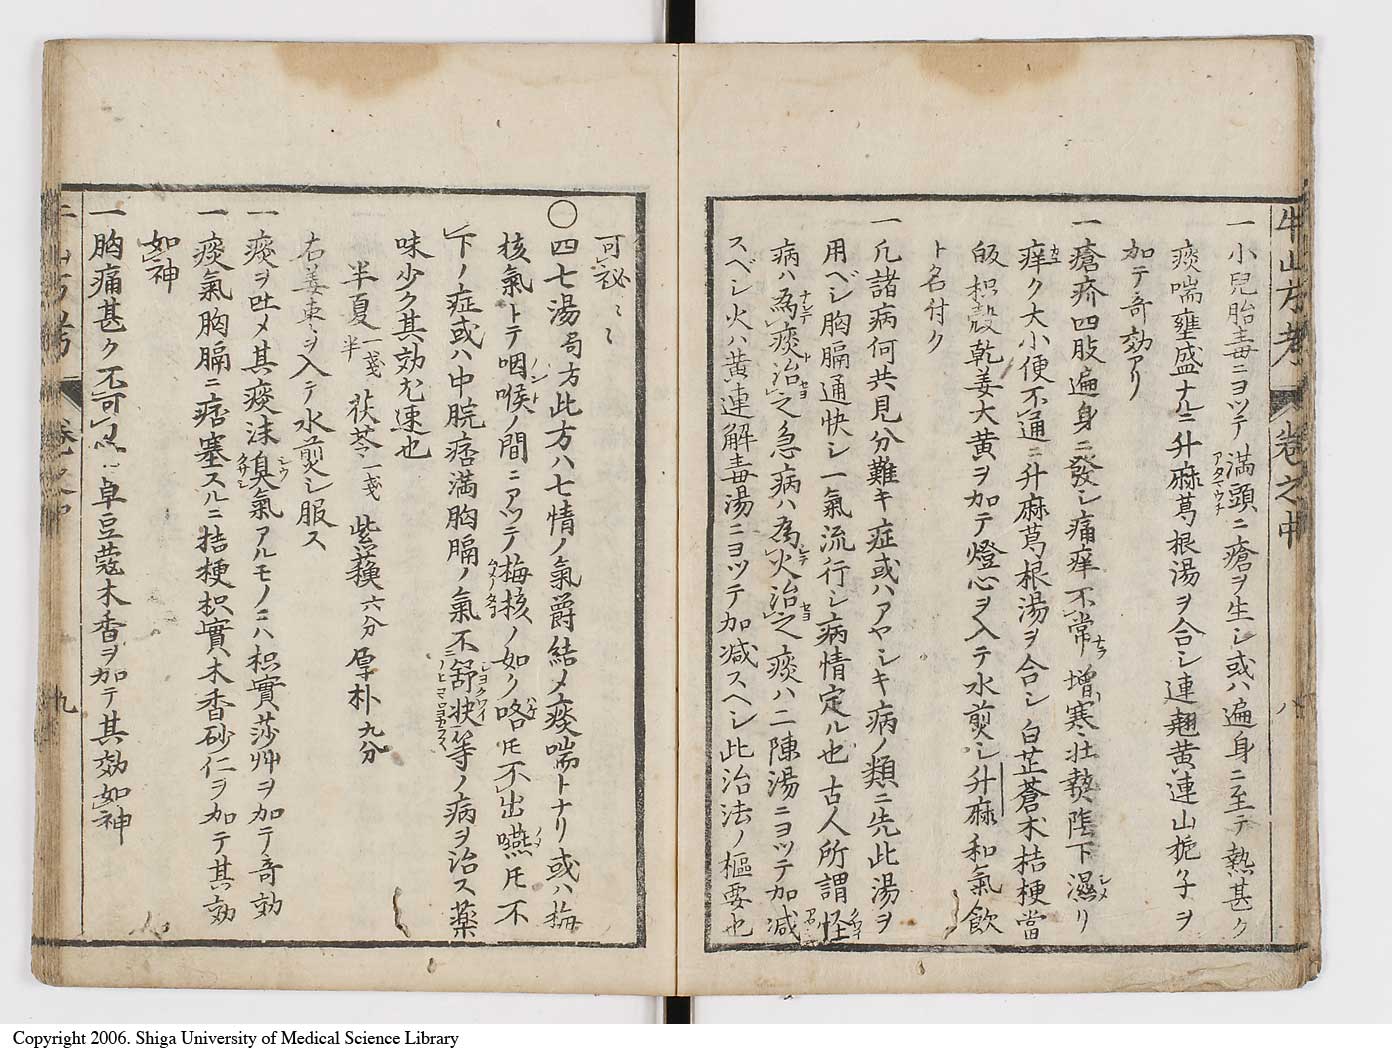 牛山方考 卷之中 八
一小兒胎毒ニヨツテ滿頭ニ瘡ヲ生シ或ハ遍身ニ至テ熱甚ク
痰喘壅盛ナルニ升麻葛根湯ヲ合シ連翹黄連山梔子ヲ
加テ竒効アリ
一瘡疥四肢遍身ニ發シ痛痒不常増寒壮熱陰下濕リ
痒ク大小便不通ニ升麻葛根湯ヲ合シ白芷蒼朮桔梗當
皈枳殻乾姜大黄ヲ加テ燈心ヲ入テ水煎シ升麻和氣飲
ト名付ク
一凡諸病何共見分難キ症或ハアヤシキ病ノ類ニ先此湯ヲ
用ベシ胸膈通快シ一氣流行シ病情定ル也古人所謂怪
病ハ為痰治之急病ハ為火治之痰ハ二陳湯ニヨツテ加减
スベシ火ハ黄連解毒湯ニヨツテ加减スヘシ此治法ノ樞要也
可祕〻〻
〇四七湯局方此方ハ七情ノ氣爵結メ痰喘トナリ或ハ梅
核氣トテ咽喉ノ間ニアツテ梅核ノ如ク咯モ不出嚥モ不
下ノ症或ハ中脘痞満胸膈ノ氣不舒快等ノ病ヲ治ス薬
味少ク其効尤速也
半夏一戔半 茯苓一戔 紫蘓六分 厚朴九分
右姜棗ヲ入テ水煎シ服ス
一痰ヲ吐メ其痰沫臭氣アルモノニハ枳實莎艸ヲ加テ竒効
一痰氣胸膈ニ痞塞スルニ桔梗枳實木香砂仁ヲ加テ其効
如神
一胸痛甚ク不可 草豆蔲木香ヲ加テ其効如神
九
Copyright 2006. Shiga University of Medical Science Library